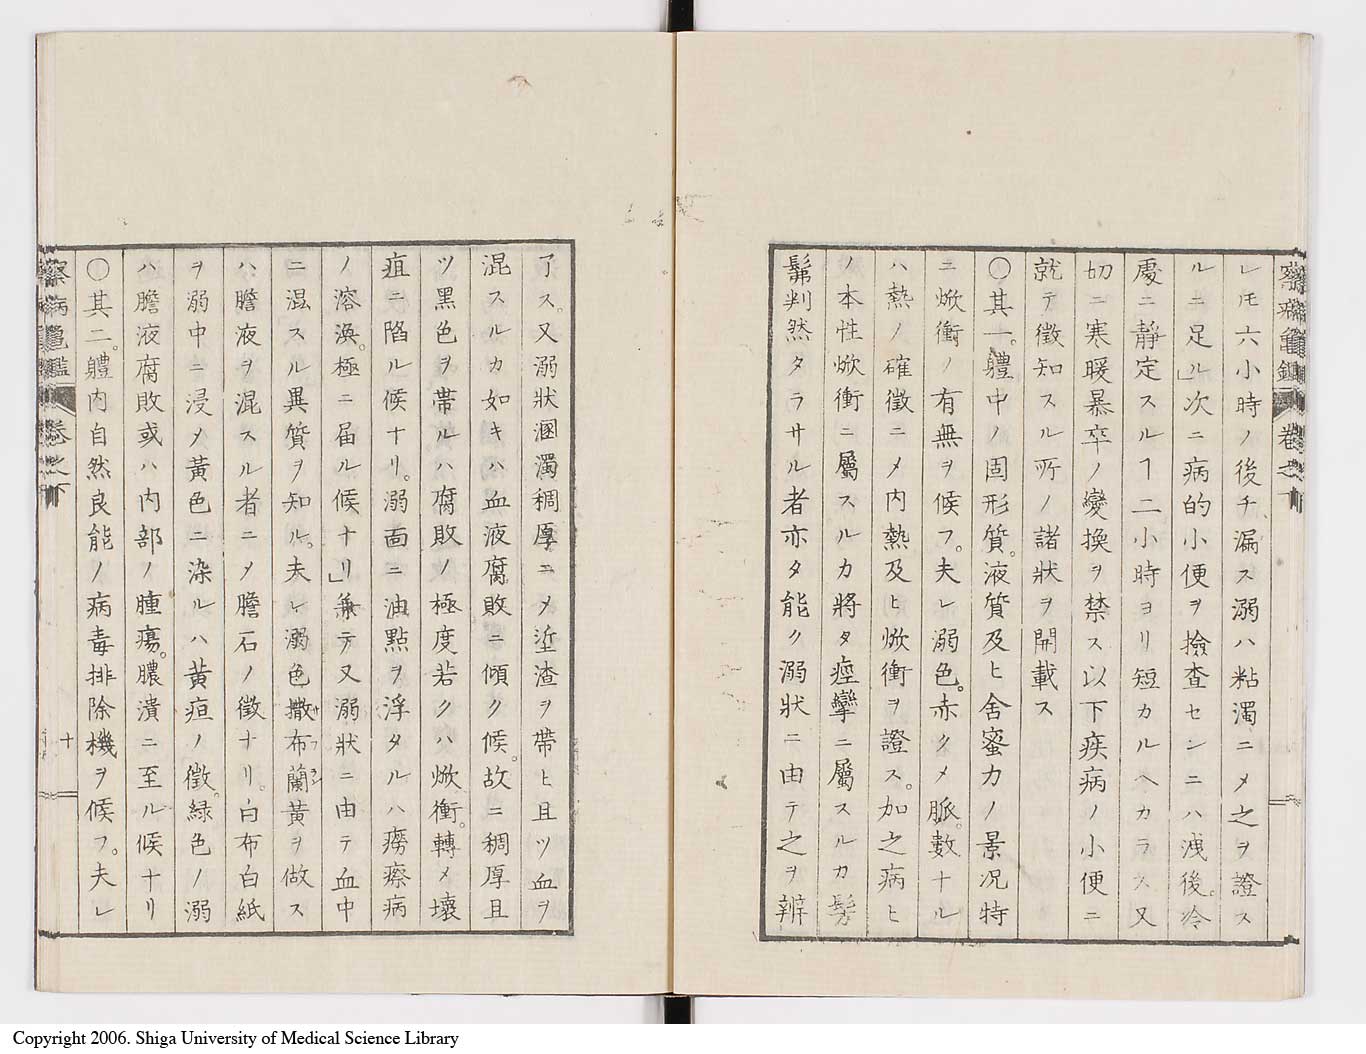 レモ六小時ノ後チ漏ス溺ハ粘濁ニメ之ヲ證ス
ルニ足ル」次ニ病的小便ヲ撿査センニハ洩後。冷
處ニ靜定スルヿ二小時ヨリ短カルヘカラス又
切ニ寒暖暴卒ノ變換ヲ禁ス以下疾病ノ小便ニ
就テ徴知スル所ノ諸狀ヲ開載ス
〇其一。體中ノ固形質。液質及ヒ舍蜜力ノ景况特
ニ焮衝ノ有無ヲ候フ。夫レ溺色。赤クメ脈。數ナル
ハ熱ノ確徴ニメ内熱及ヒ焮衝ヲ證ス。加之病ヒ
ノ本性焮衝ニ屬スルカ將タ痙攣ニ屬スルカ髣
髴判然タラサル者亦タ能ク溺狀ニ由テ之ヲ辨
了ス。又溺狀溷濁稠厚ニメ垽渣ヲ帶ヒ且ツ血ヲ
混スルカ如キハ血液腐敗ニ傾ク候。故ニ稠厚且
ツ黑色ヲ帶ルハ腐敗ノ極度若クハ焮衝。轉メ壞
疽ニ陷ル候ナリ。溺面ニ油點ヲ浮タルハ癆瘵病
ノ溶渙。極ニ届ル候ナリ」兼テ又溺狀ニ由テ血中
ニ混スル異質ヲ知ル。夫レ溺色撒布蘭黃ヲ做ス
ハ膽液ヲ混スル者ニメ膽石ノ徴ナリ。白布白紙
ヲ溺中ニ浸メ黃色ニ染ルハ黃疸ノ徴。綠色ノ溺
ハ膽液腐敗或ハ内部ノ腫瘍。膿潰ニ至ル候ナリ
〇其二。體内自然良能ノ病毒排除機ヲ候フ。夫レ
察病龜鑑 卷之下
十
Copyright 2006. Shiga University of Medical Science Library